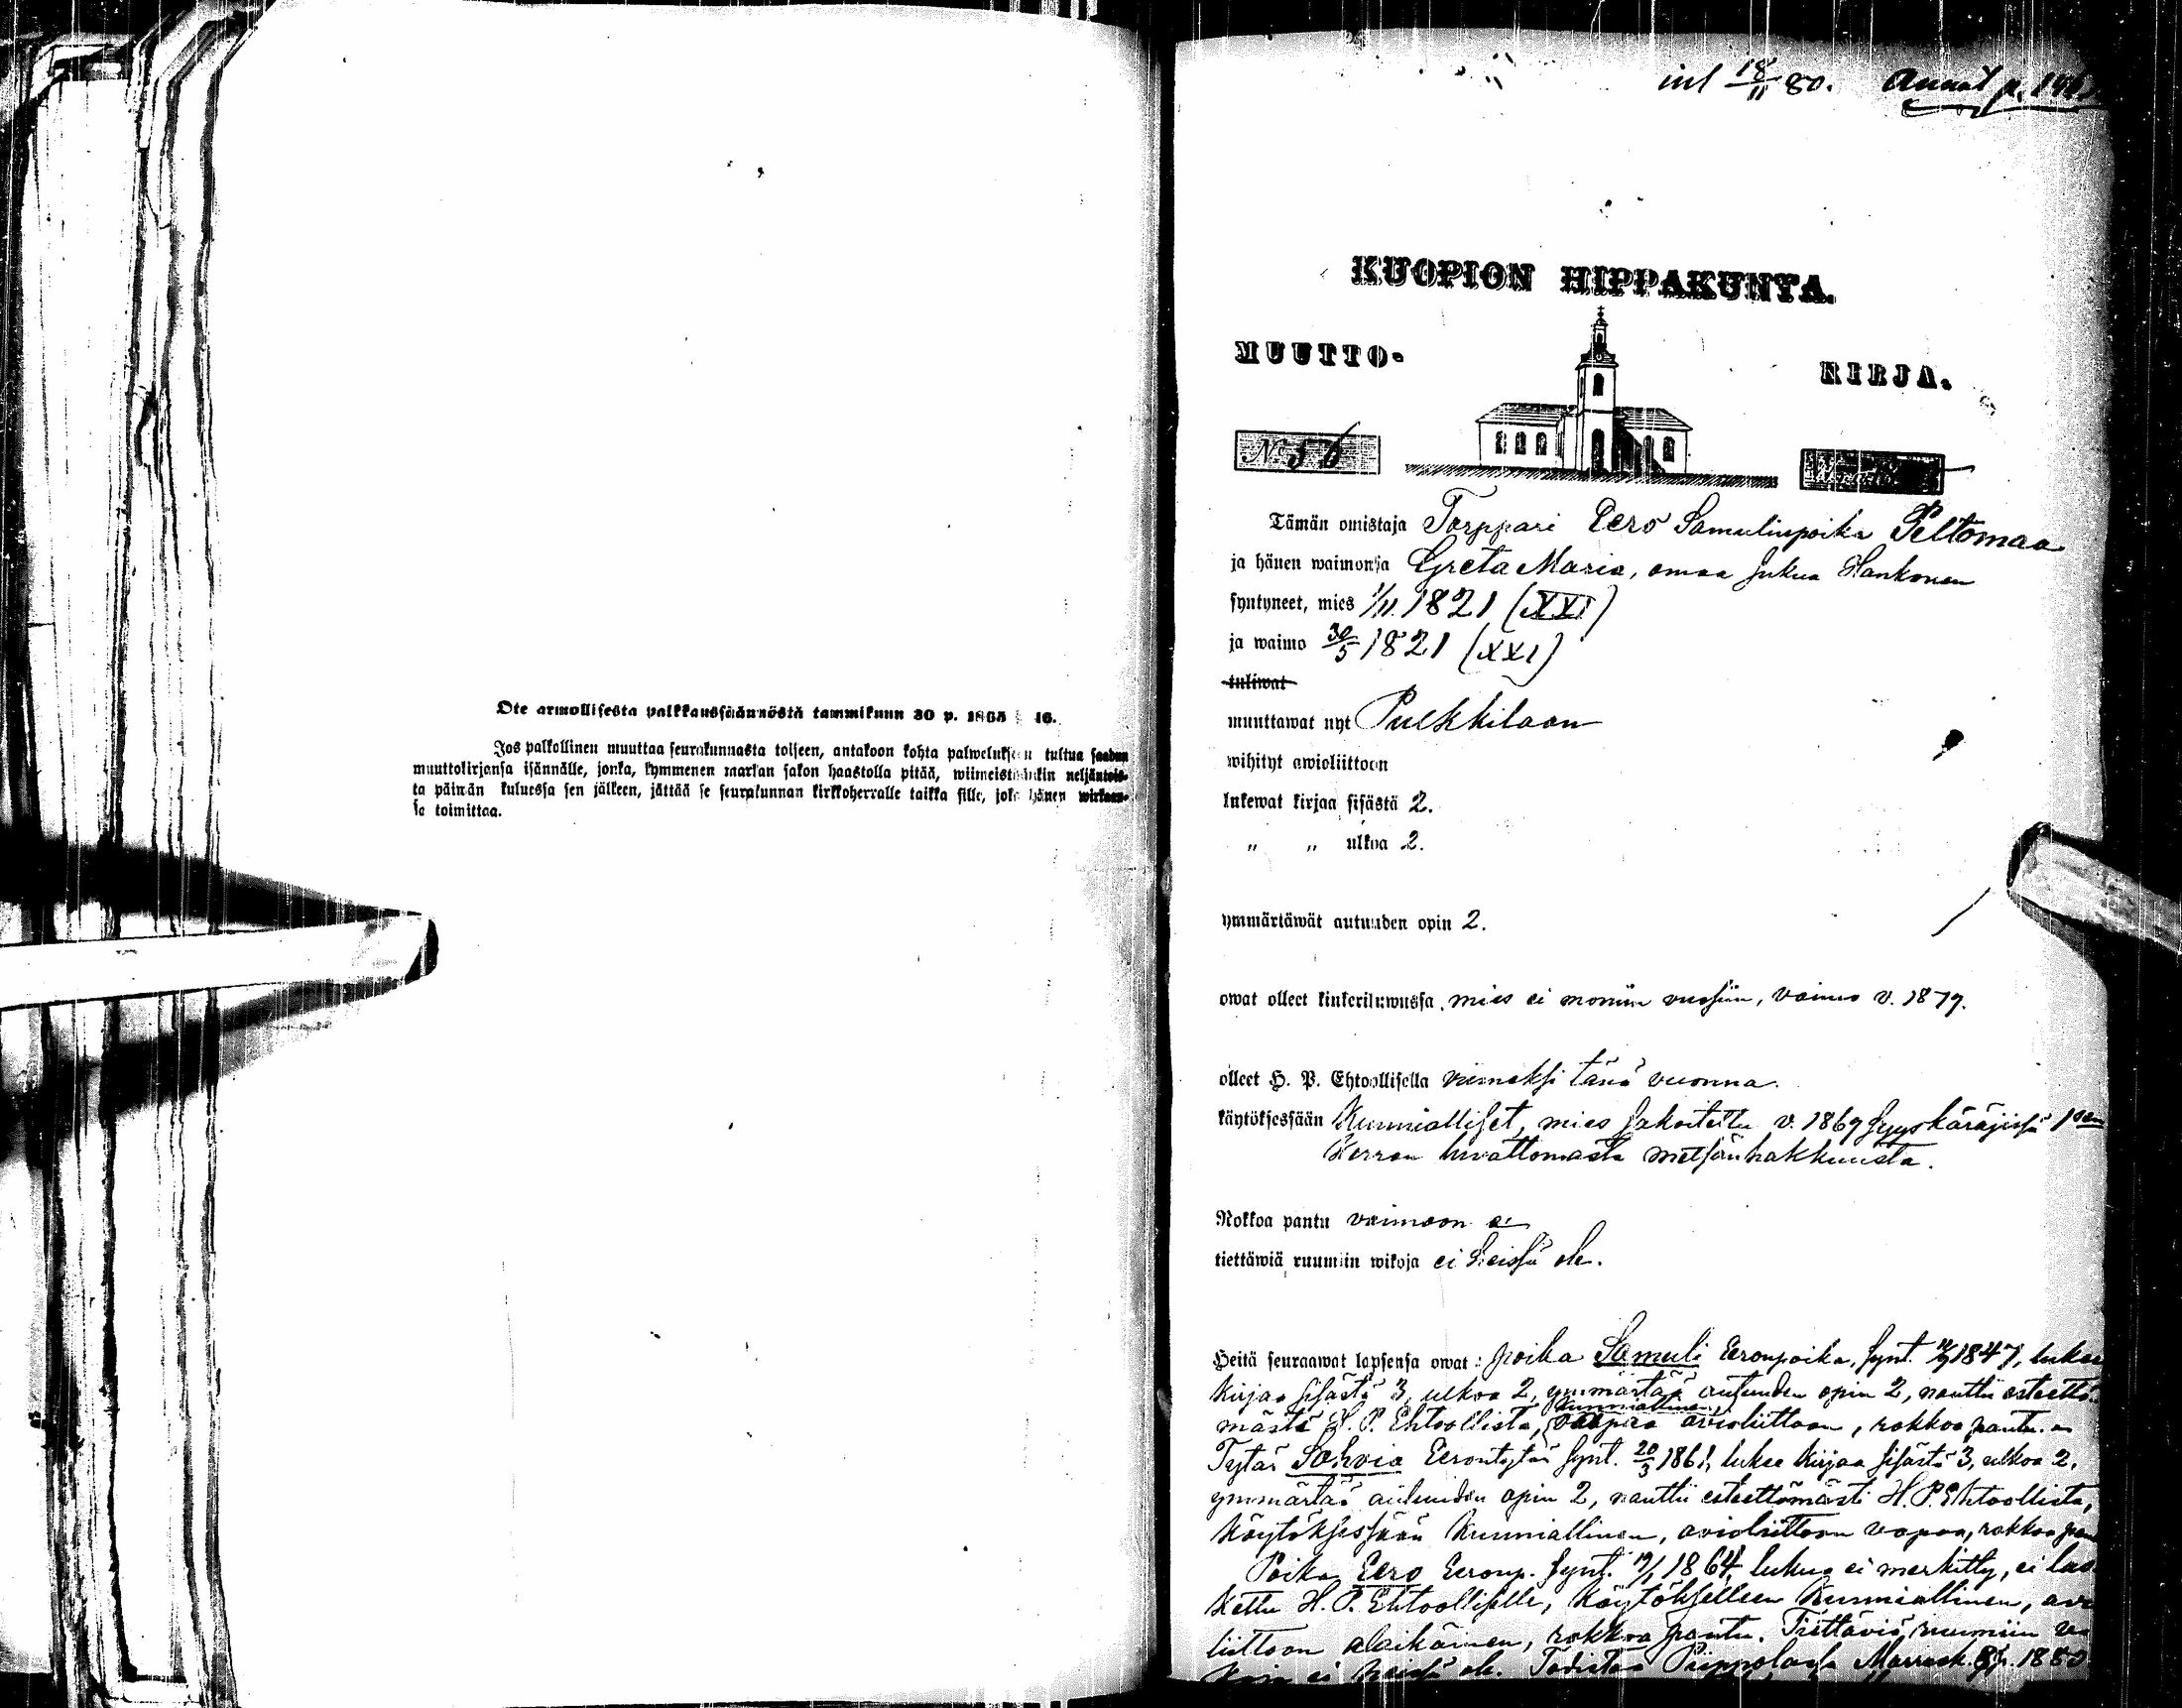 Ote armollisesta palkkaussäännöstä tammikunn 30 p. 1865 § 16.
Jos palkollinen muuttaa seurakunnasta toiseen, antakoon kohta palwelukseen tultua saadun
muuttokirjansa isännälle, jonka, kymmenen markan sakon haastolla pitää, wiimeistäänkin neljäntois-
ta päiwän kuluessa sen jälkeen, jättää se seurakunnan kirkkoherralle taikka sille, joka hänen wirkaan-
sa toimittaa.
inl 18/11 80. Annot p.
KUOPION HIPPAKUNTA.
MUUTTO- KIRJA.
No 56
Tämän omistaja Torppari Eero Samulinpoika Peltomaa
ja hänen waimonsa Greta Maria, omaa sukua Hankonen
syntyneet, mies 1/11 1821 (XXI)
ja waimo 30/5 1821 (XXI)
tuliwat
muuttawat nyt Pulkkilaan
wihityt awioliittoon
lukewat kirjaa sisästä 2.
" " ulkoa 2.
ymmärtäwät autuuden opin 2.
owat olleet kinkeriluwussa, mies ei moniin vuosiin, vaimo v. 1879.
olleet H. P. Ehtoollisella viimeksi tänä vuonna.
käytöksessään Kunnialliset, mies sakoitettu v. 1869 syyskäräjissä 1sen
Kerran luvattomasta metsänhakkuusta.
Rokkoa pantu vaimoon ei
tiettäwiä ruumiin wikoja ei heissä ole.
Heitä seuraawat lapsensa owat: poika Samuli Eeronpoika, synt. 1847, lukee
kirjaa sisästä 3, ulkoa 2, ymmärtää autuuden opin 2, nauttii esteettö-
mästi H. P. Ehtoollista, kunniallinen, vapaa avioliittoon, rokkoa pantu.
Tytär Sohvia Eerontytär synt. 20/3 1861, lukee kirjaa sisästä 3, ulkoa 2,
ymmärtää autuuden opin 2, nauttii esteettömästi H. P. Ehtoollista,
käytöksessään kunniallinen, avioliittoon vapaa, rokkoa pan
Poika Eero Eeronp. synt. 19/1 1864, lukua ei merkitty, ei las
kettu H. P. Ehtoolliselle, käytökselleen kunniallinen, avi
liittoon alaikäinen, rokkoa pantu. Tiettäviä ruumiin vi
koja ei heissä ole. Todistaa Piippolassa Marrask. 1880